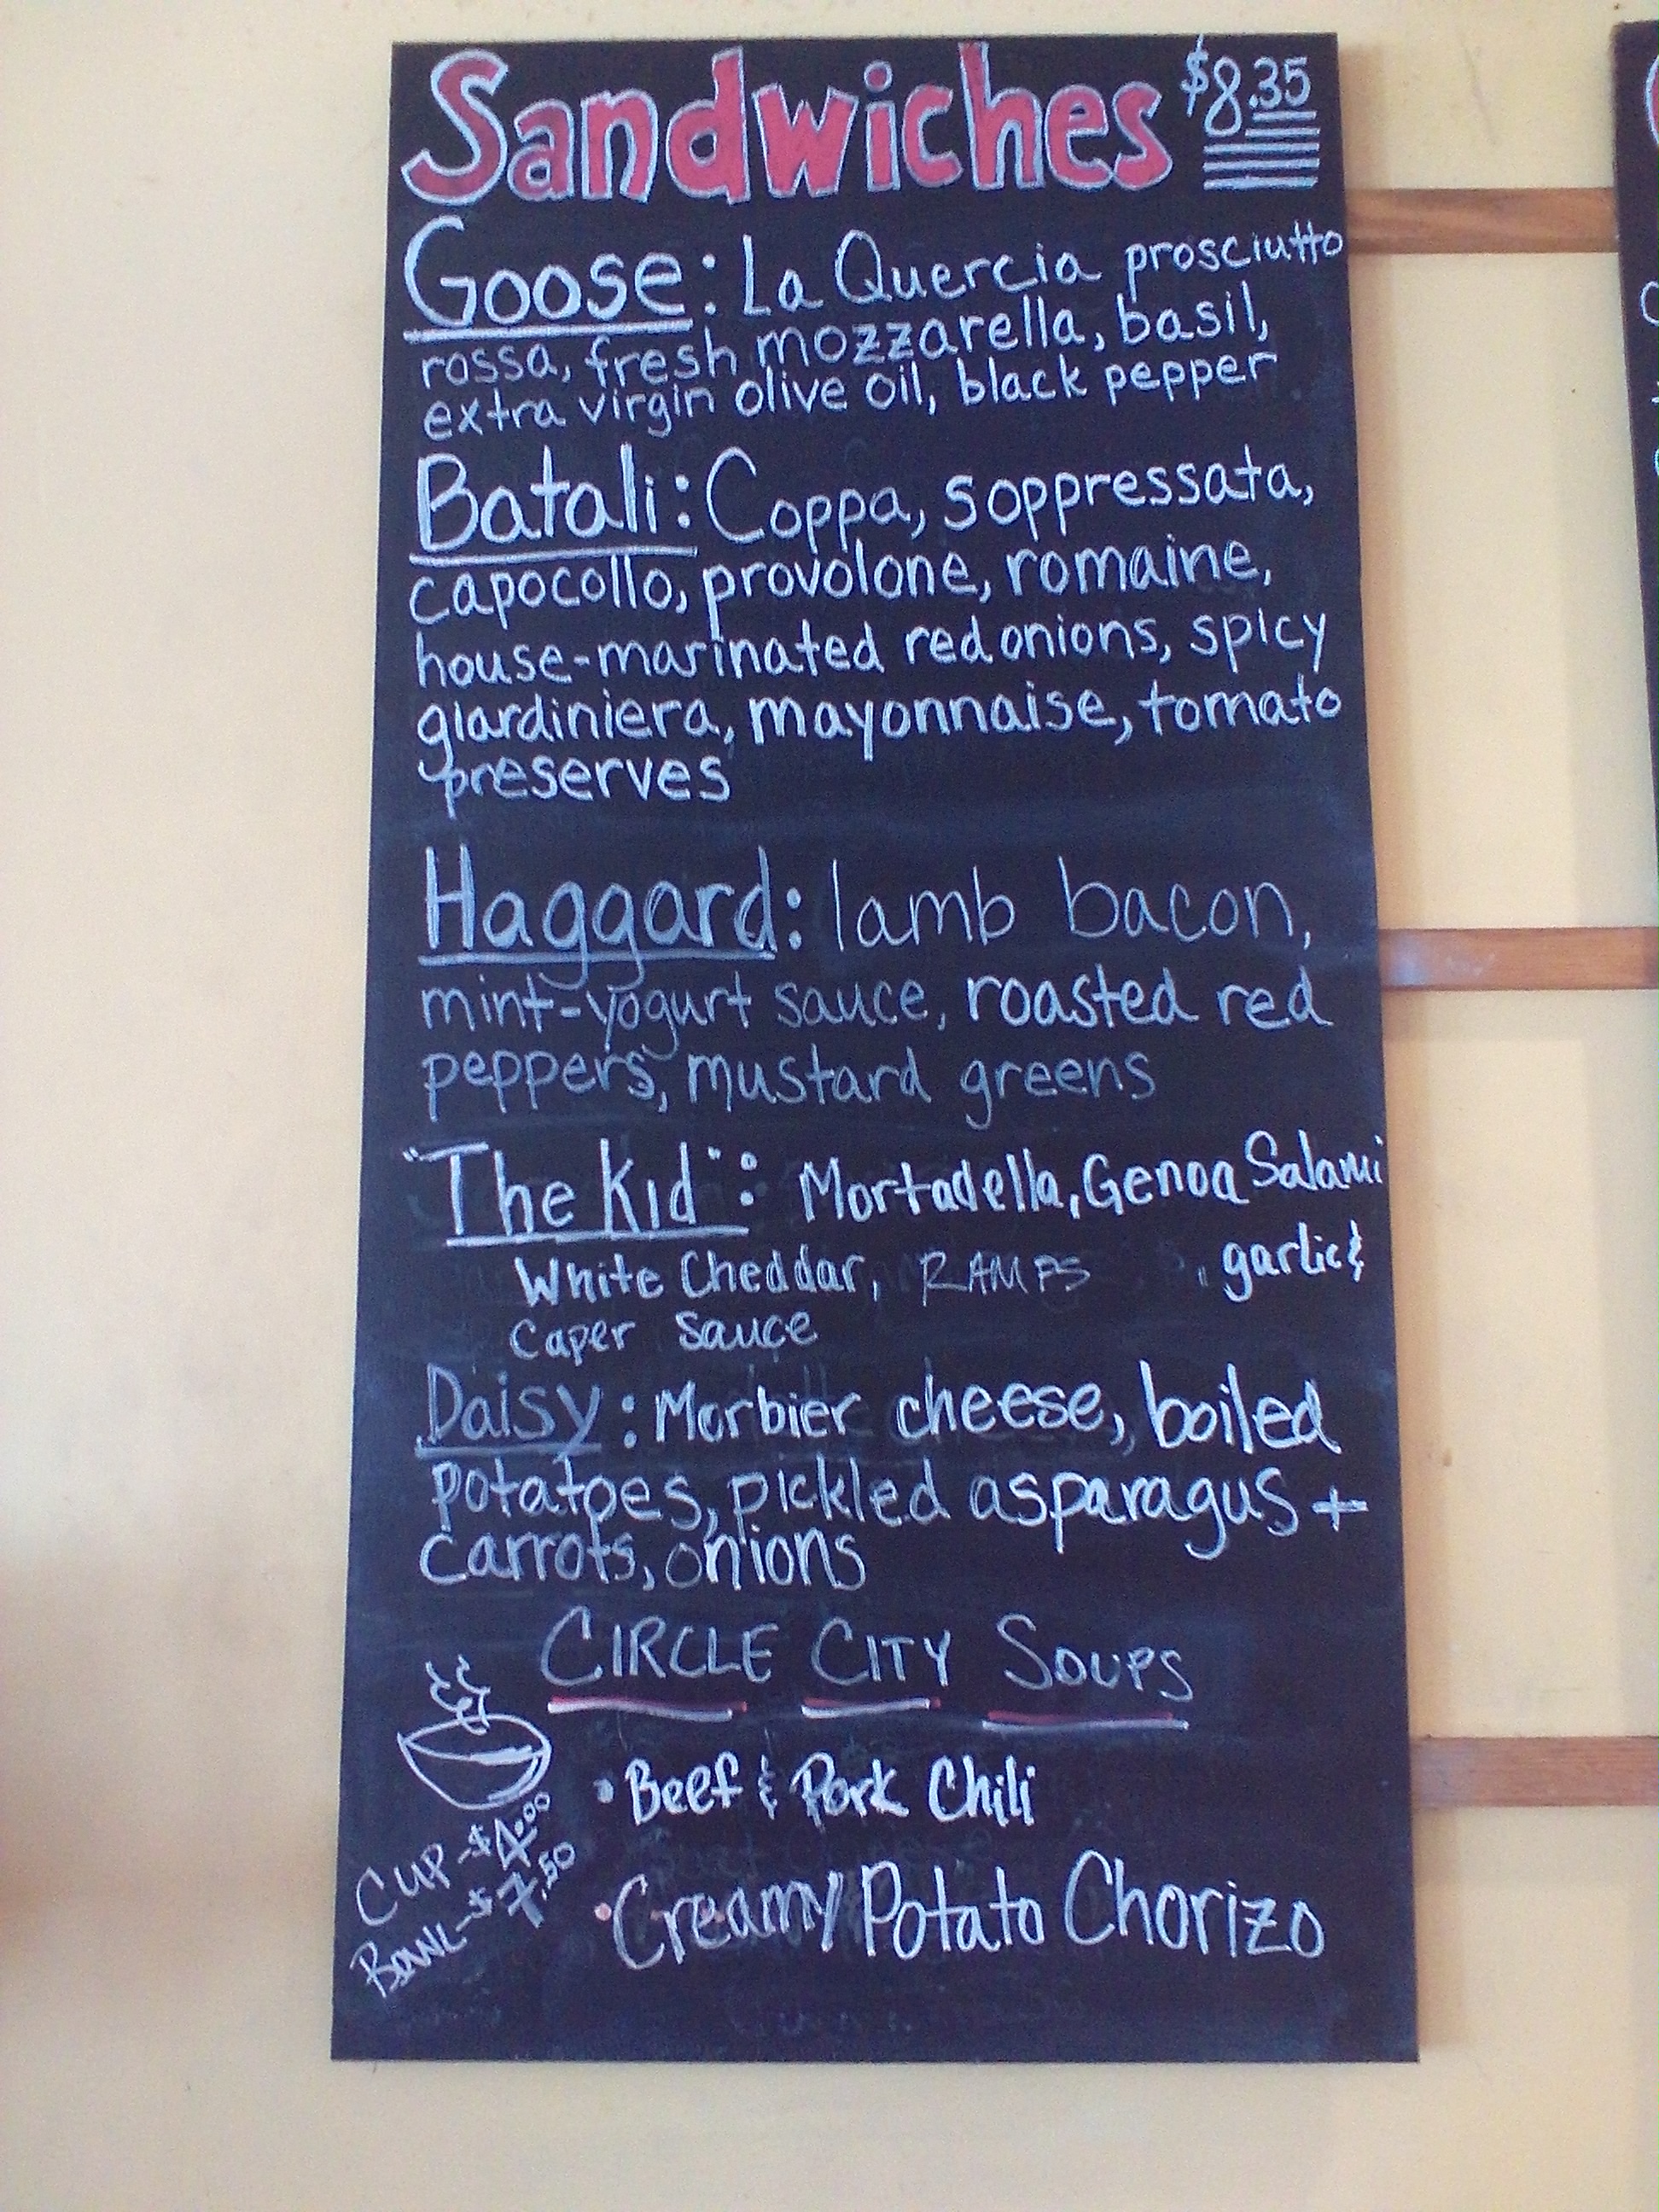 Sandwiches $8.35
Goose: La Quercia prosciutto
rossa, fresh mozzarella, basil,
extra virgin olive oil, black pepper
Batali: Coppa, soppressata,
capocollo, provolone, romaine,
house-marinated red onions, spicy
giardiniera, mayonnaise, tomato
preserves
Haggard: lamb bacon,
mint-yogurt sauce, roasted red
peppers, mustard greens
"The Kid": Mortadella, Genoa Salami
White Cheddar, RAMPS, garlic &
Caper Sauce
Daisy: Morbier cheese, boiled
potatoes, pickled asparagus +
carrots, onions
CIRCLE CITY SOUPS
• Beef & Pork Chili
CUP - $4.00
BOWL - $7.50
• Creamy Potato Chorizo